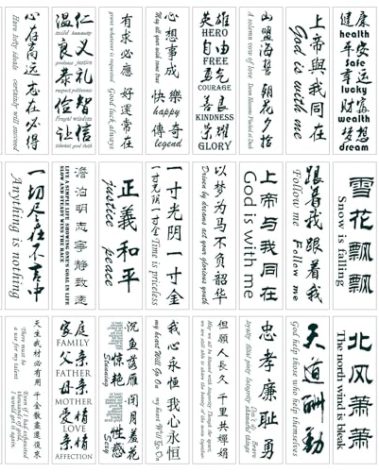 心存高远 志在必得
Have lofty ideals certainly will succeed
温良恭俭让
仁义礼智信
有求必應 好運常在
Good luck always
心想事成
May all your wish come true
快樂
happy
傳奇
legend
英雄
HERO
自由
FREE
勇气
COURAGE
善良
KINDNESS
荣耀
GLORY
山盟海誓
上帝與我同在
God is with me
健康
health
平安
safe
幸运
lucky
财富
wealth
梦想
dream
一切尽在不言中
Anything is nothing
澹泊明志 寧静致远
LIVE A SIMPLE LIFE SHOWING ONE'S GOAL IN LIFE
正義 和平
justice peace
一寸光阴一寸金
Time is priceless
以梦为马 不负韶华
上帝与我同在
God is with me
跟着我
Follow me
跟着我
Follow me
雪花飘飘
Snow is falling
天生我材必有用 千金散盡還復來
家庭
FAMILY
父亲
FATHER
母亲
MOTHER
爱情
LOVE
亲情
AFFECTION
沉鱼落雁 闭月羞花
惊艳
Stunning
性感
Sexy
我心永恒
my heart Will Go On
我心永恒
my heart Will Go On
但願人長久 千里共嬋娟
忠孝廉耻勇
天道酬勤
God help those who help themselves
北风萧萧
The north wind is bleak